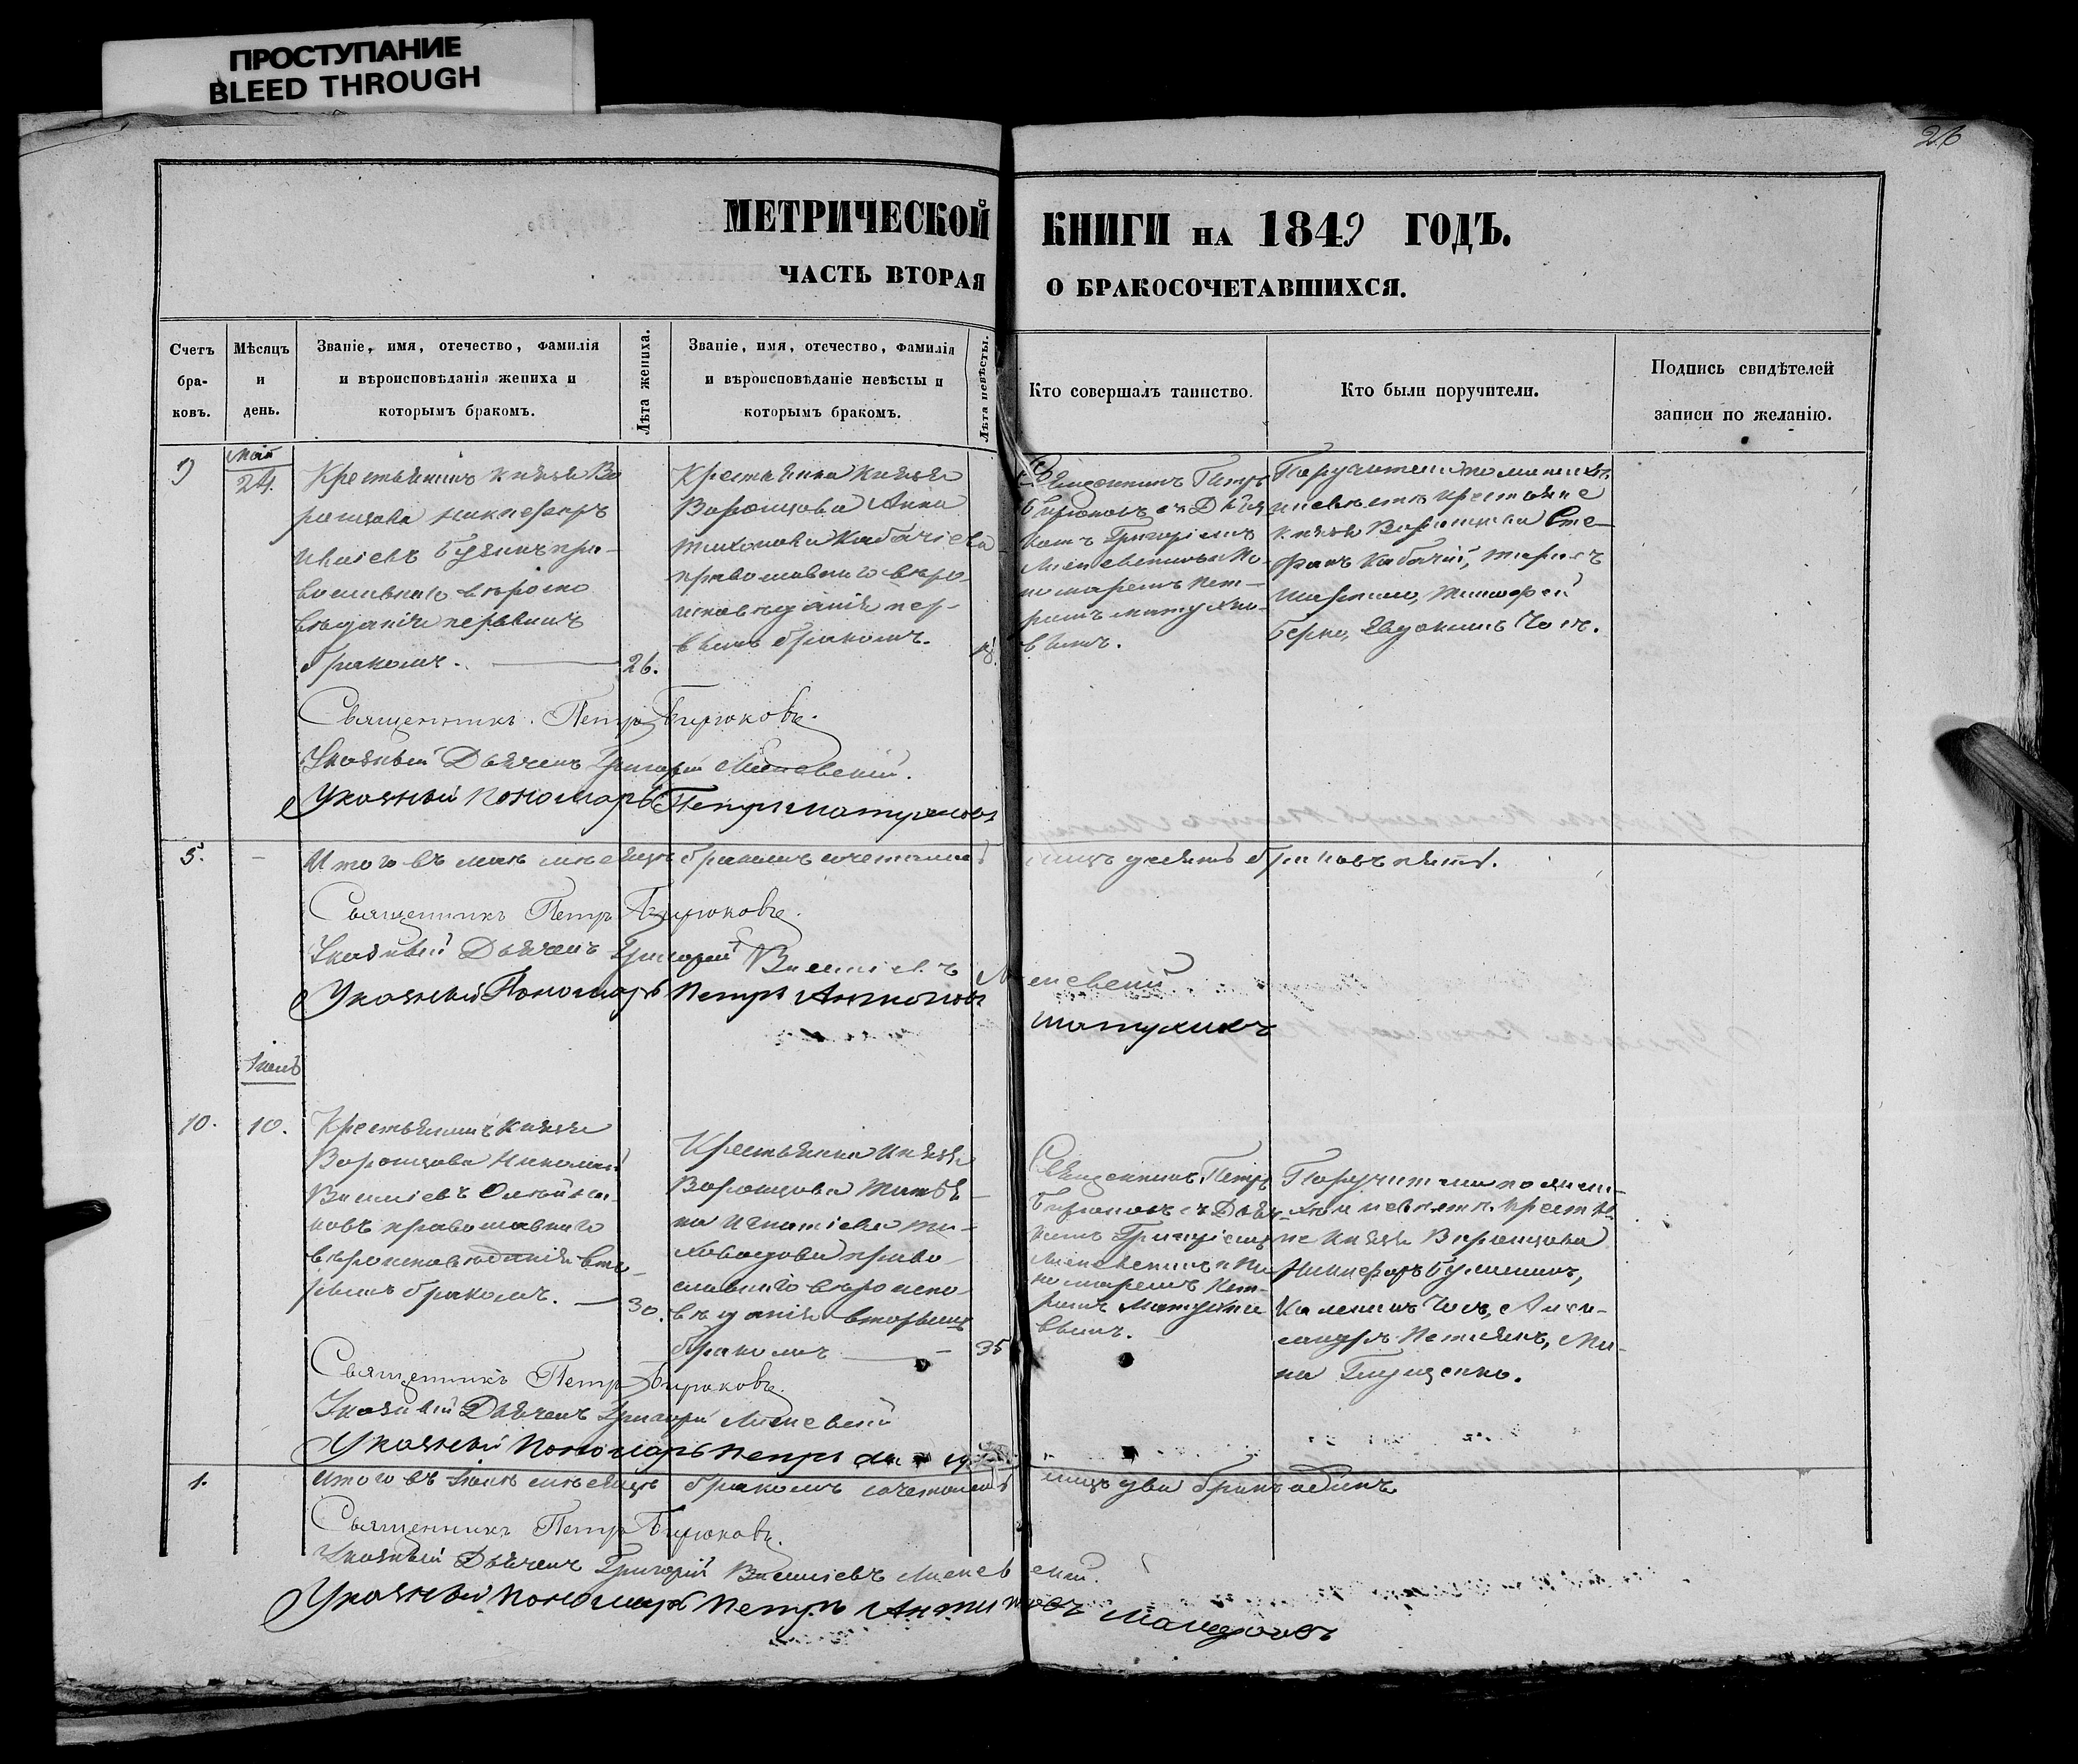 ПРОСТУПАНИЕ
BLEED THROUGH
26
МЕТРИЧЕСКОЙ КНИГИ НА 1849 ГОДЪ.
ЧАСТЬ ВТОРАЯ О БРАКОСОЧЕТАВШИХСЯ.
Счетъ
бра-
ковъ.
Мѣсяцъ
и
день.
Званіе, имя, отечество, фамилія
и вѣроисповѣданія жениха и
которымъ бракомъ.
Лѣта жениха.
Званіе, имя, отечество, фамилія
и вѣроисповѣданіе невѣсты и
которымъ бракомъ.
Лѣта невѣсты.
Кто совершалъ таинство.
Кто были поручители.
Подпись свидѣтелей
записи по желанію.
Май
24.
Крестьянинъ князя Во
ронцова Никифоръ
пра-
вославнаго вѣроиспо
вѣданія первымъ
бракомъ. 26.
Крестьянка князя
Воронцова Анна
Тихонова
православнаго вѣро
исповѣданія пер-
вымъ бракомъ.
Священникъ Петръ
Бирюковъ съ Дьяч
комъ Григоріемъ
и По
номаремъ Пет-
ромъ
вымъ.
Поручители по женихѣ
и невѣстѣ крестьяне
князя Воронцова Сте-
фанъ Кабачій,
Тимофей
Евдокимъ
Священникъ Петръ Бирюковъ.
Указный Дьячекъ Григорій
Указный Пономарь Петръ
5. Итого въ маѣ мѣсяцѣ бракомъ сочеталось лицъ десять браковъ пять.
Священникъ Петръ Бирюковъ.
Указный Дьячекъ Григорій Василіевъ
Указный Пономарь Петръ Антоновъ
Іюнь
10. 10.
Крестьянинъ князя
Воронцова Николай
Василіевъ
новъ православнаго
вѣроисповѣданія вто-
рымъ бракомъ. 30.
Крестьянка князя
Воронцова Татья-
на Игнатіева
право-
славнаго вѣроиспо
вѣданія вторымъ
бракомъ 35
Священникъ Петръ
Бирюковъ съ Дьяч-
комъ Григоріемъ
и По
номаремъ Пет-
ромъ
вымъ.
Поручители по жени-
хѣ и невѣстѣ крестья
не князя Воронцова
Никифоръ
Алек-
сандръ Ми-
на Глущенко.
Священникъ Петръ Бирюковъ.
Указный Дьячекъ Григорій
Указный Пономарь Петръ
1. Итого въ Іюнѣ мѣсяцѣ бракомъ сочеталось лицъ два бракъ одинъ
Священникъ Петръ Бирюковъ.
Указный Дьячекъ Григорій Василіевъ
Указный Пономарь Петръ Антоновъ